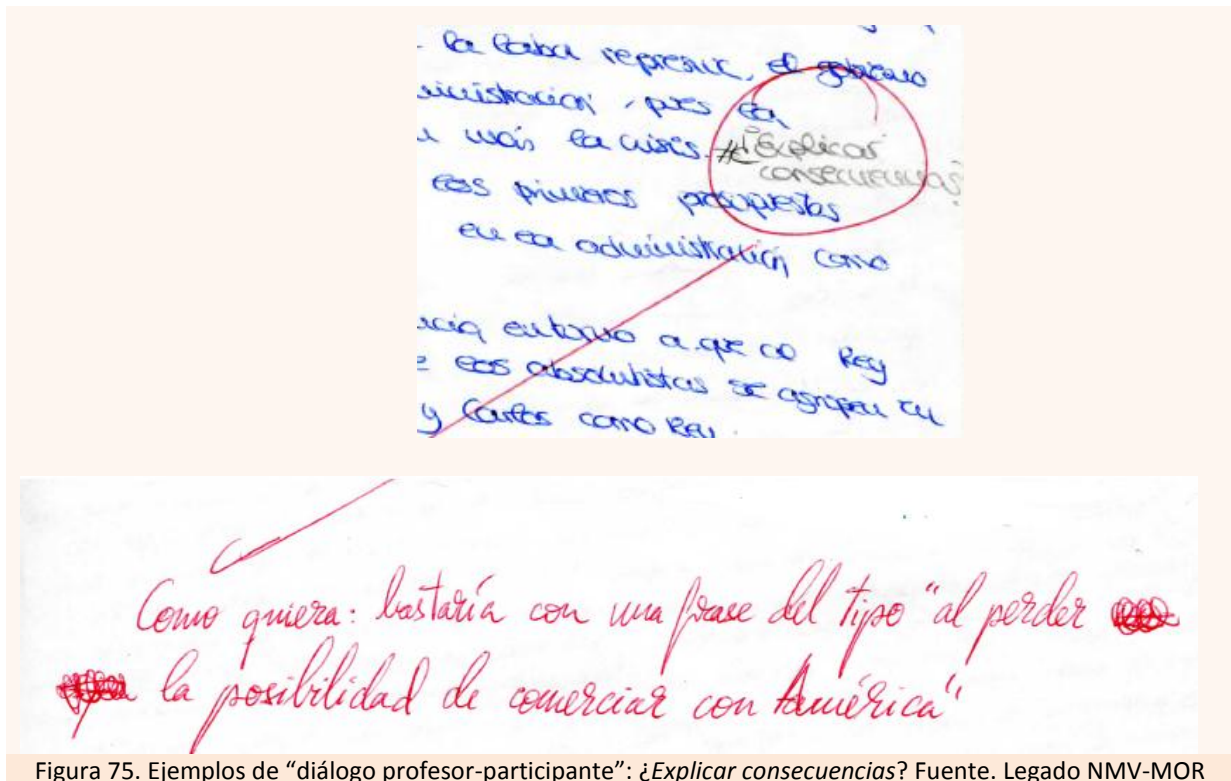 la labor represiva, el gobierno
administración, pues la
más la crisis. # ¿Explicar
consecuencias?
los primeros presupuestos
en la administración como
entorno a que no Rey
los absolutistas se agrupen en
y Carlos como Rey.
Como quiera: bastaría con una frase del tipo "al perder
la posibilidad de comerciar con América"
Figura 75. Ejemplos de “diálogo profesor-participante”: ¿Explicar consecuencias? Fuente. Legado NMV-MOR